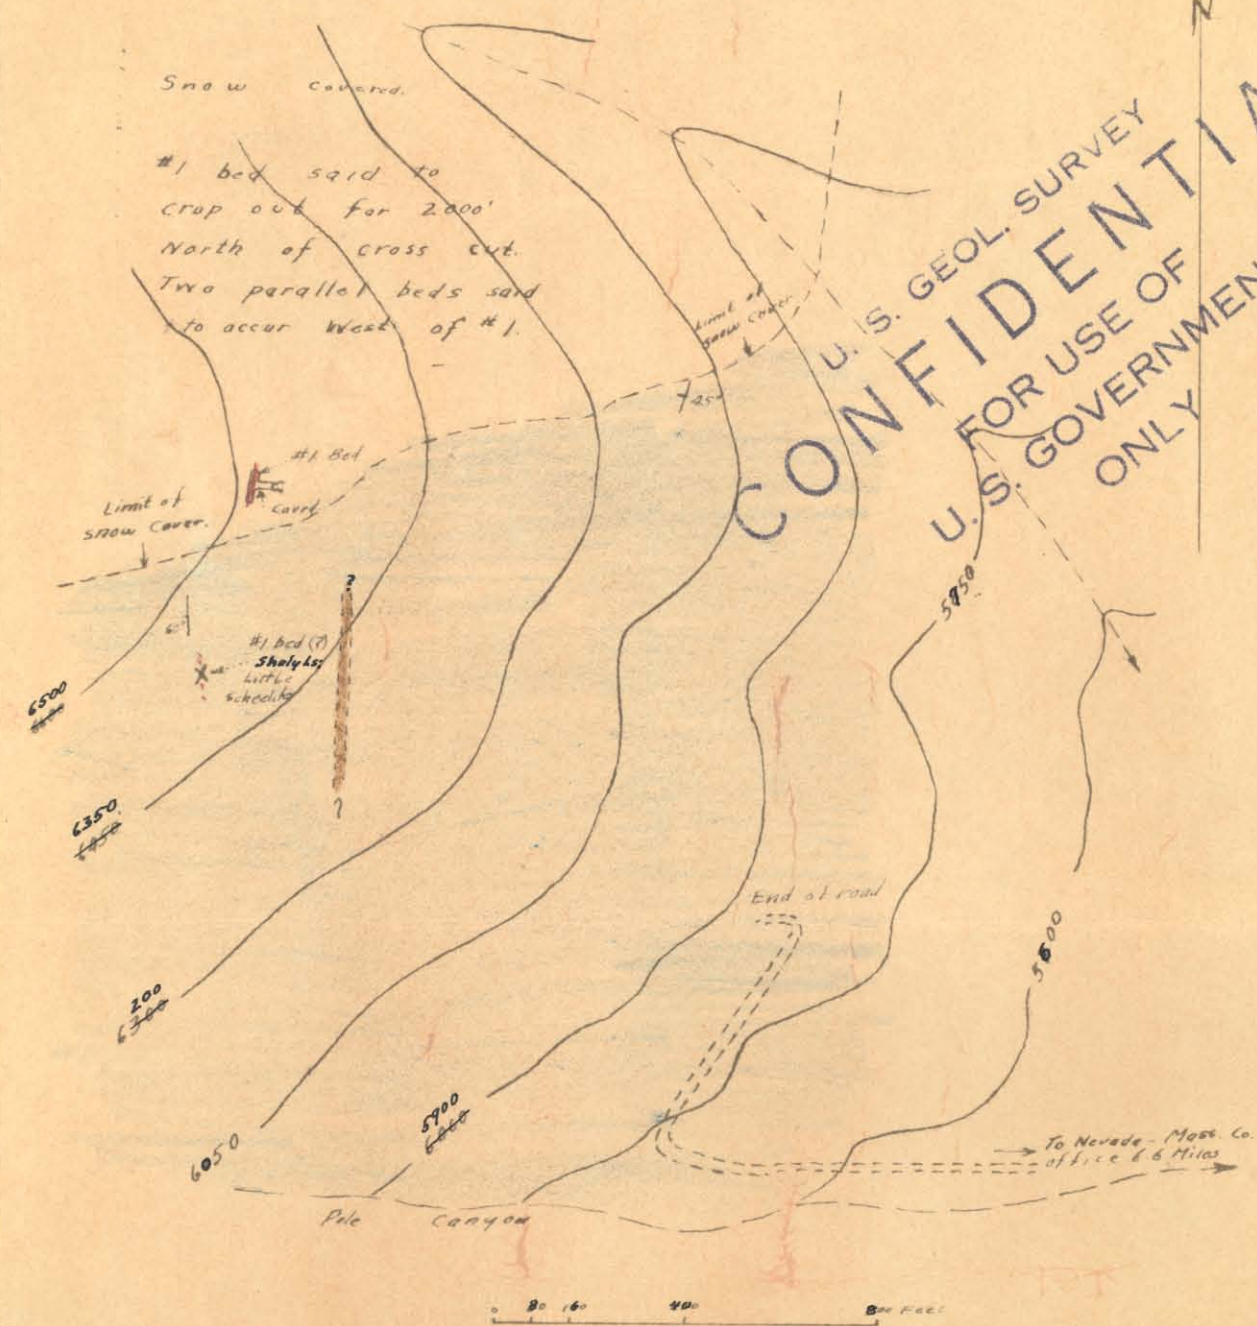 N
Snow covered.
#1 bed said to
crop out for 2000'
North of cross cut.
Two parallel beds said
to occur West of #1.
U. S. GEOL. SURVEY
CONFIDENTIA
FOR USE OF
U. S. GOVERNMEN
ONLY
Limit of
snow cover
25°
#1 Bed
Caved
Limit of
snow Cover.
?
#1 bed (?)
Shaly Ls;
Little
scheelite
?
5750
6500
6350
6450
200
6300
End of road
5600
5900
6000
6050
To Nevada-Mass. Co.
office 6.6 Miles
Pole Canyon
0 80 160 400 800 Feet